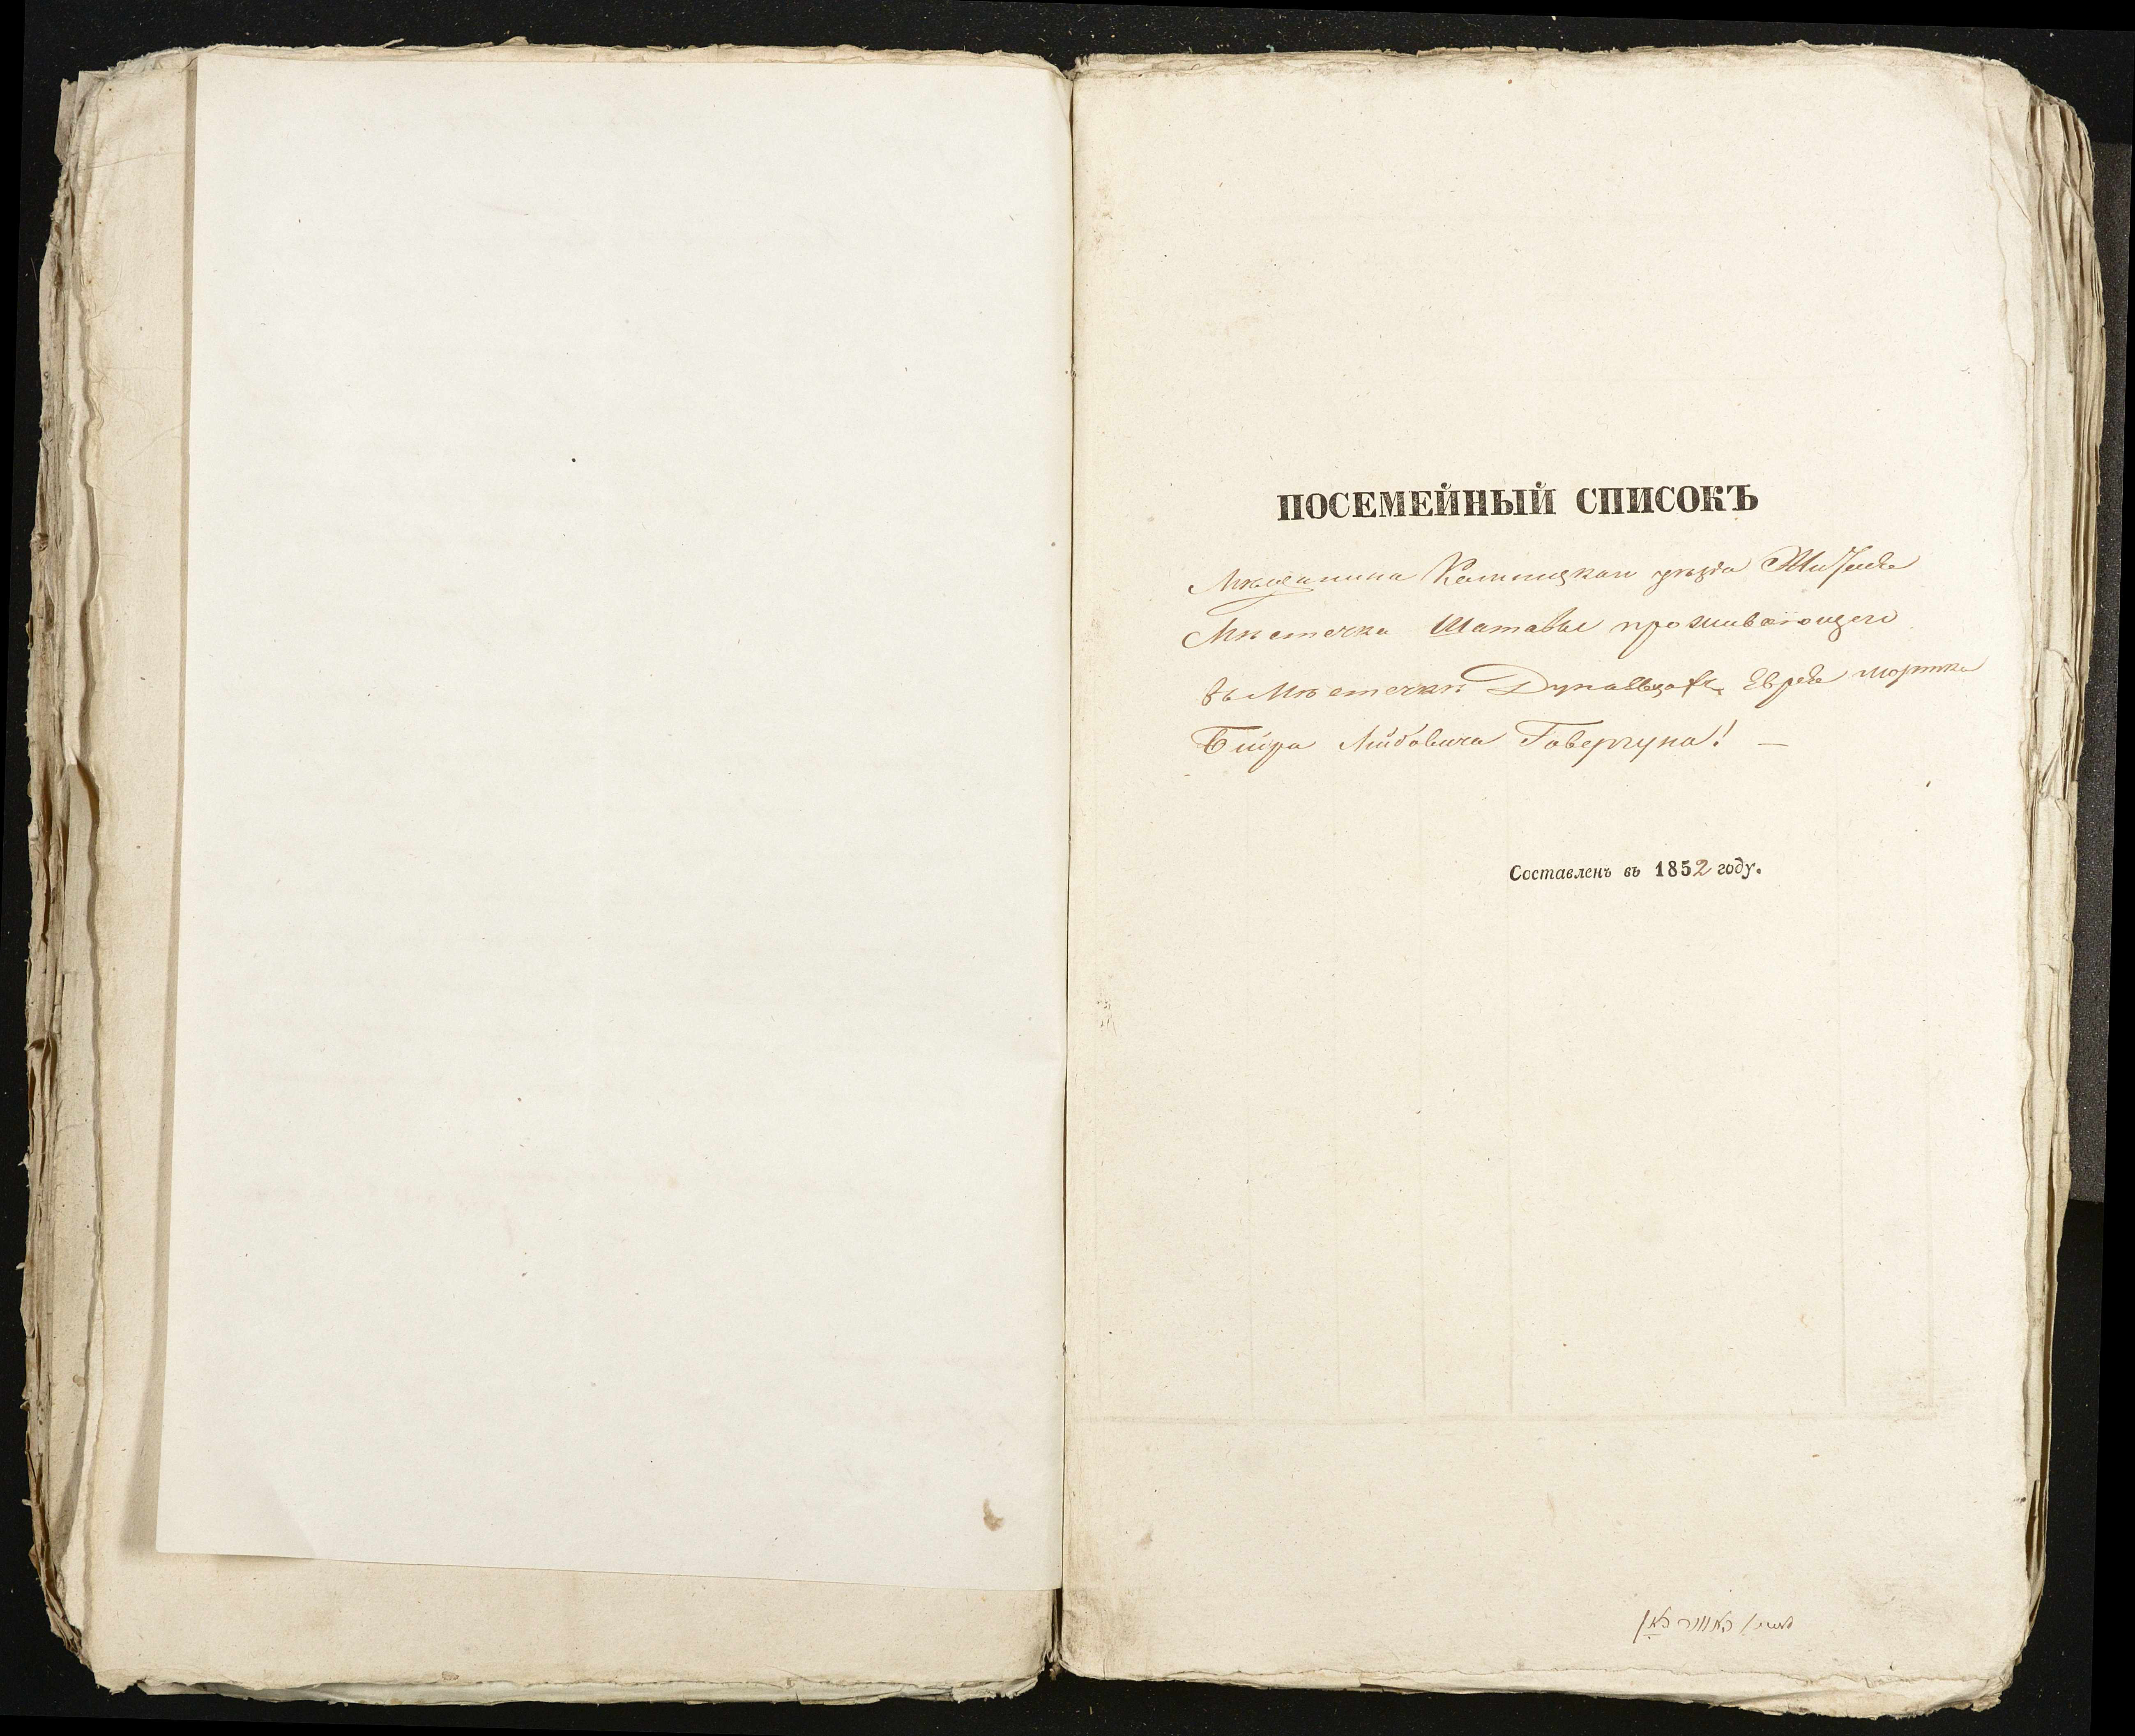 ПОСЕМЕЙНЫЙ СПИСОКЪ
Мѣщанина Каминцкаго уѣзда Жителя
Мѣстечка Шатавы проживаюющего
въ Мѣстечкѣ Дунаевцахъ Еврея Мортка
Бийра Лейбовича Говергуна! —
Составленъ въ 1852 году.